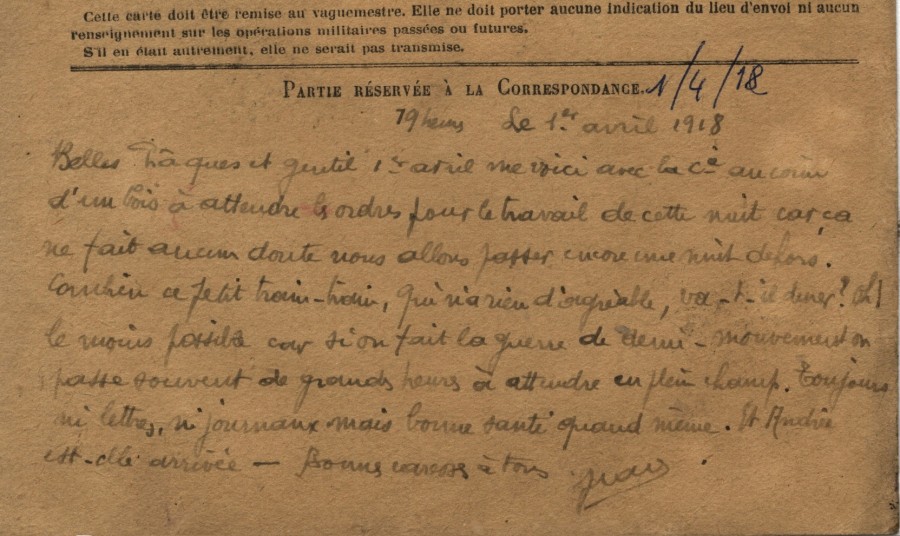 Cette carte doit être remise au vaguemestre. Elle ne doit porter aucune indication du lieu d'envoi ni aucun
renseignement sur les opérations militaires passées ou futures.
S'il en était autrement, elle ne serait pas transmise.
PARTIE RÉSERVÉE À LA CORRESPONDANCE. 1/4/18
19 heures Le 1er avril 1918
Belles Pâques et gentil 1er avril me voici avec la Cie au coin
d'un bois à attendre les ordres pour le travail de cette nuit car ça
ne fait aucun doute nous allons passer encore une nuit dehors.
Combien ce petit train-train, qui n'a rien d'agréable, va-t-il durer? Oh!
le moins possible car si on fait la guerre de demi-mouvement on
passe souvent de grands heures à attendre en plein champ. Toujours
ni lettres, ni journaux mais bonne santé quand même. Et Andrée
est-elle arrivée — Bonnes caresses à tous